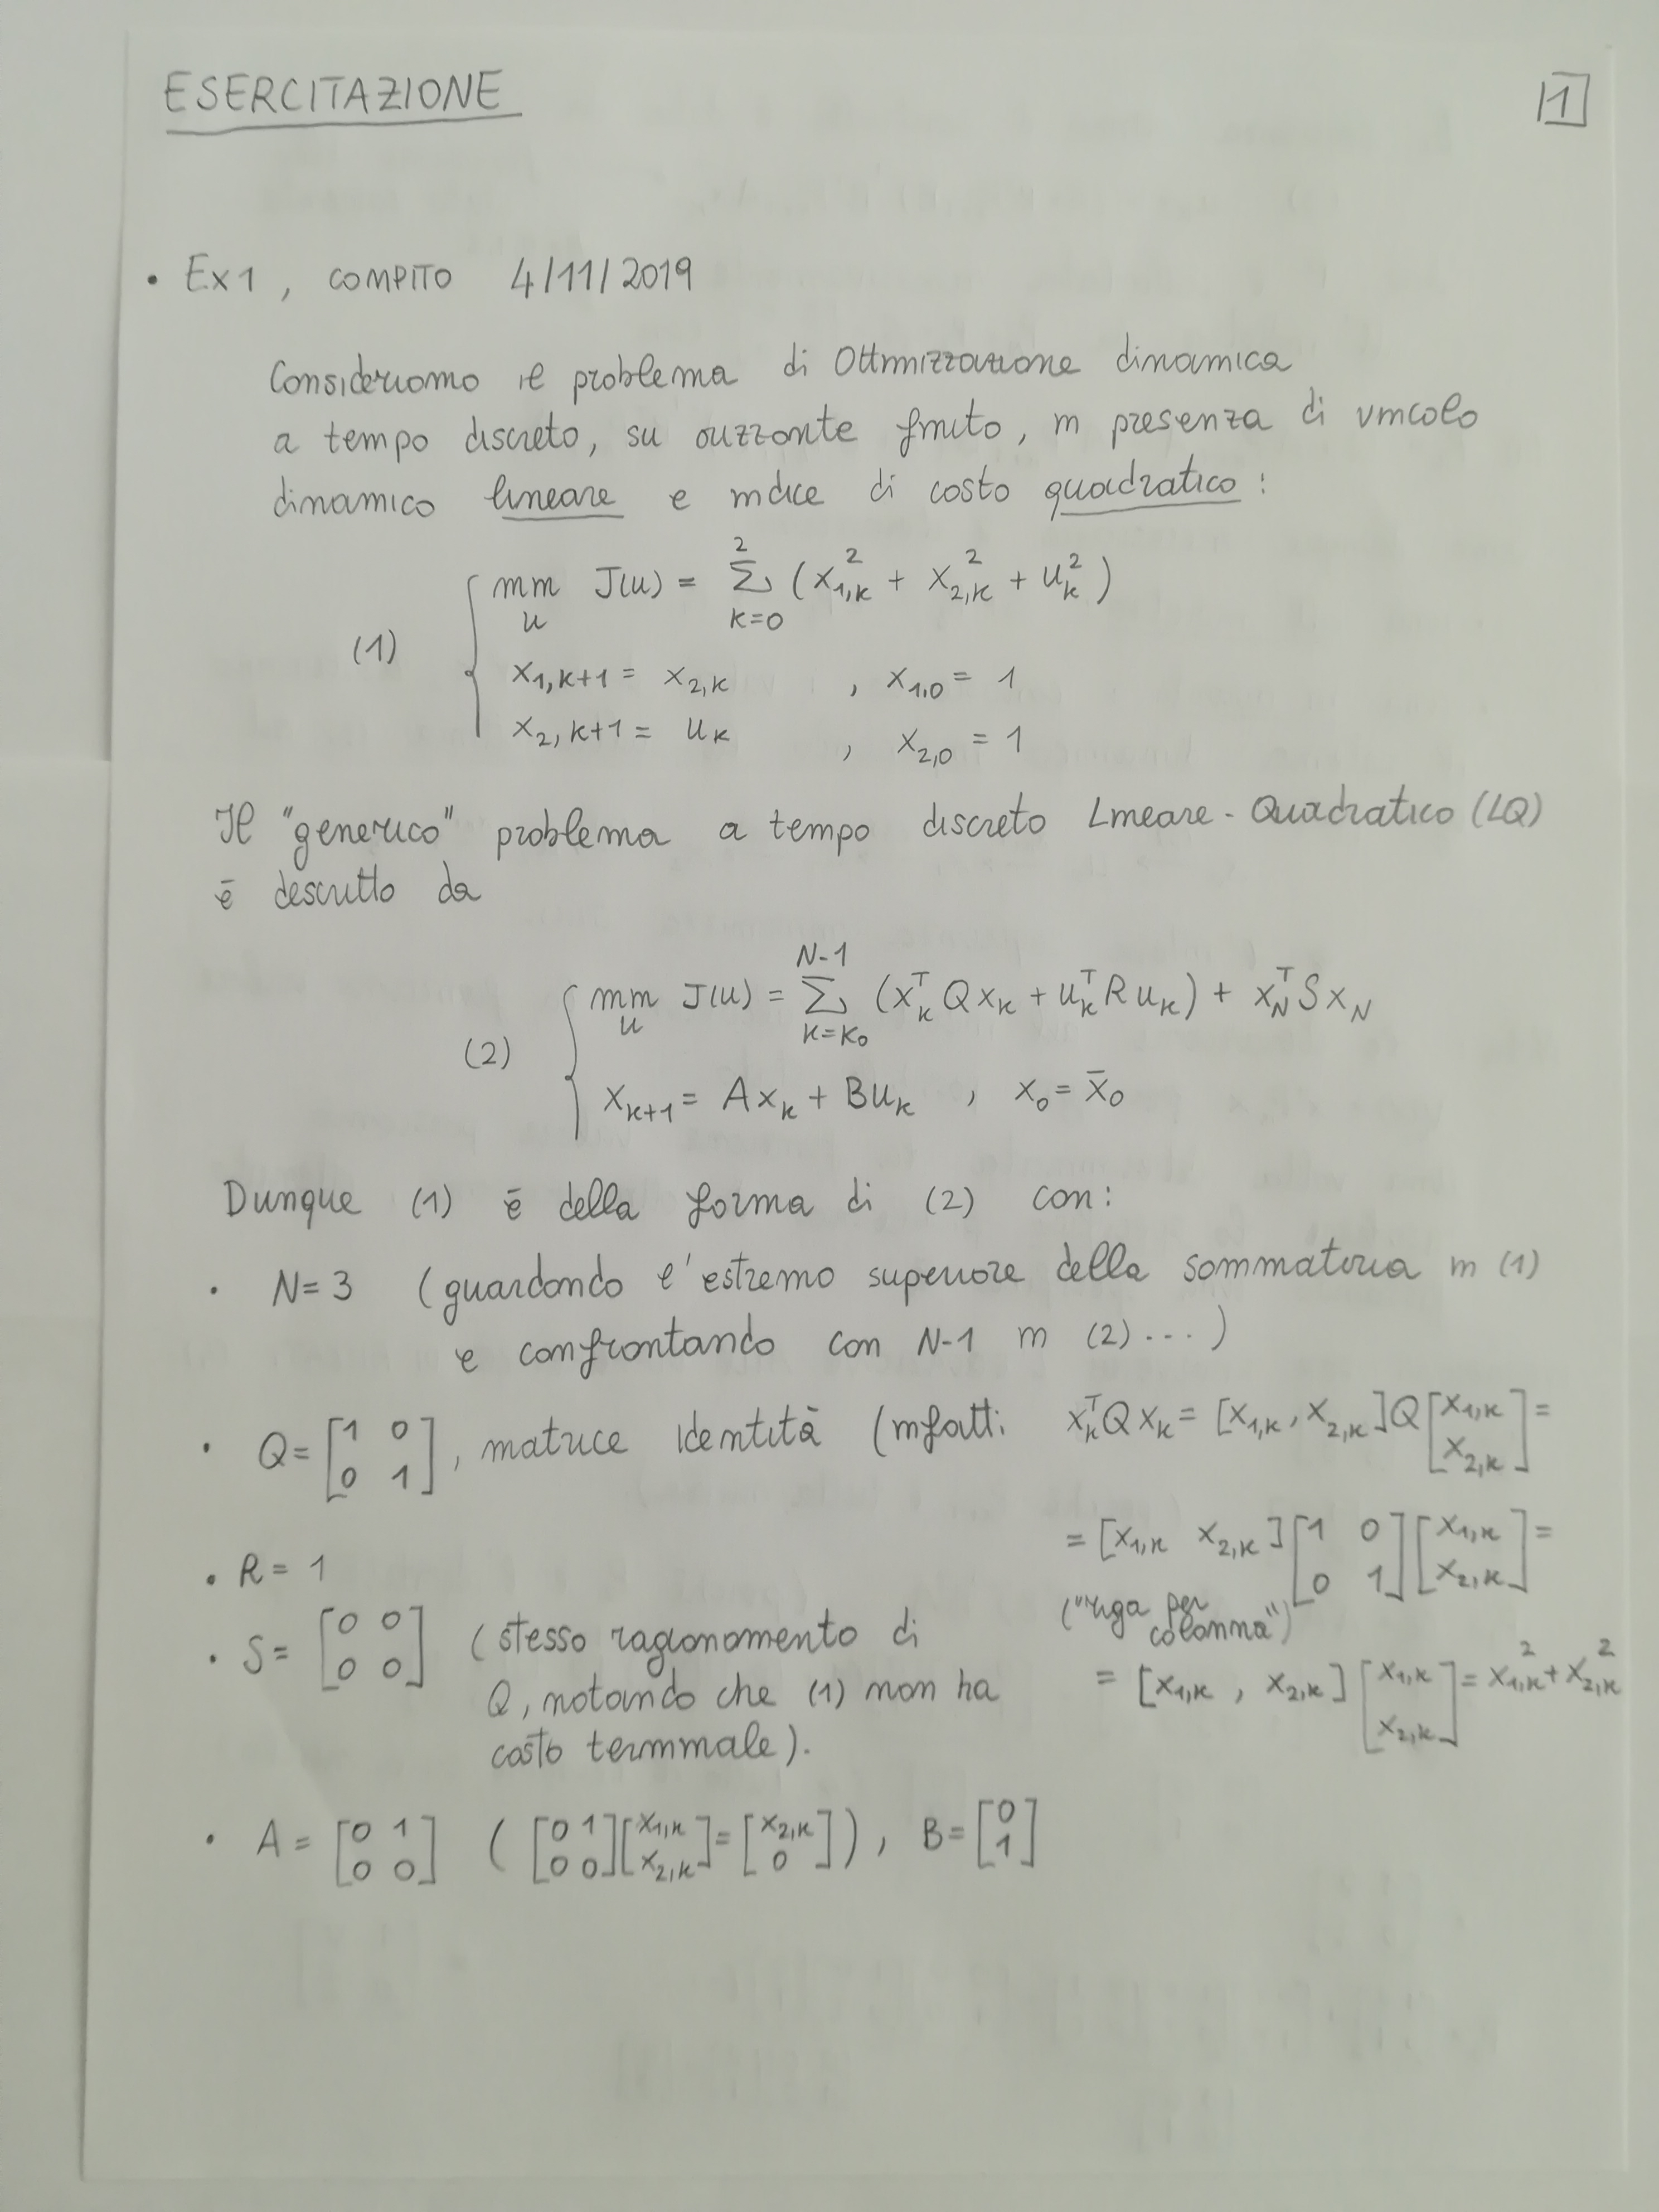 ESERCITAZIONE
1
• Ex1, COMPITO 4/11/2019
Consideriamo il problema di Ottimizzazione dinamica
a tempo discreto, su orizzonte finito, in presenza di vincolo
dinamico lineare e indice di costo quadratico:
(1) { min_u J(u) = Σ_{k=0}^{2} (x_{1,k}^2 + x_{2,k}^2 + u_k^2)
x_{1,k+1} = x_{2,k} , x_{1,0} = 1
x_{2,k+1} = u_k , x_{2,0} = 1
Il "generico" problema a tempo discreto Lineare-Quadratico (LQ)
è descritto da
(2) { min_u J(u) = Σ_{k=k_0}^{N-1} (x_k^T Q x_k + u_k^T R u_k) + x_N^T S x_N
x_{k+1} = A x_k + B u_k , x_0 = x̄_0
Dunque (1) è della forma di (2) con:
• N=3 (guardando l'estremo superiore della sommatoria in (1)
e confrontando con N-1 in (2)...)
• Q = [1 0; 0 1], matrice identità (infatti x_k^T Q x_k = [x_{1,k}, x_{2,k}] Q [x_{1,k}; x_{2,k}] =
= [x_{1,k} x_{2,k}] [1 0; 0 1] [x_{1,k}; x_{2,k}] =
("riga per colonna")
= [x_{1,k}, x_{2,k}] [x_{1,k}; x_{2,k}] = x_{1,k}^2 + x_{2,k}^2
• R = 1
• S = [0 0; 0 0] (stesso ragionamento di
Q, notando che (1) non ha
costo terminale).
• A = [0 1; 0 0] ([0 1; 0 0] [x_{1,k}; x_{2,k}] = [x_{2,k}; 0]), B = [0; 1]